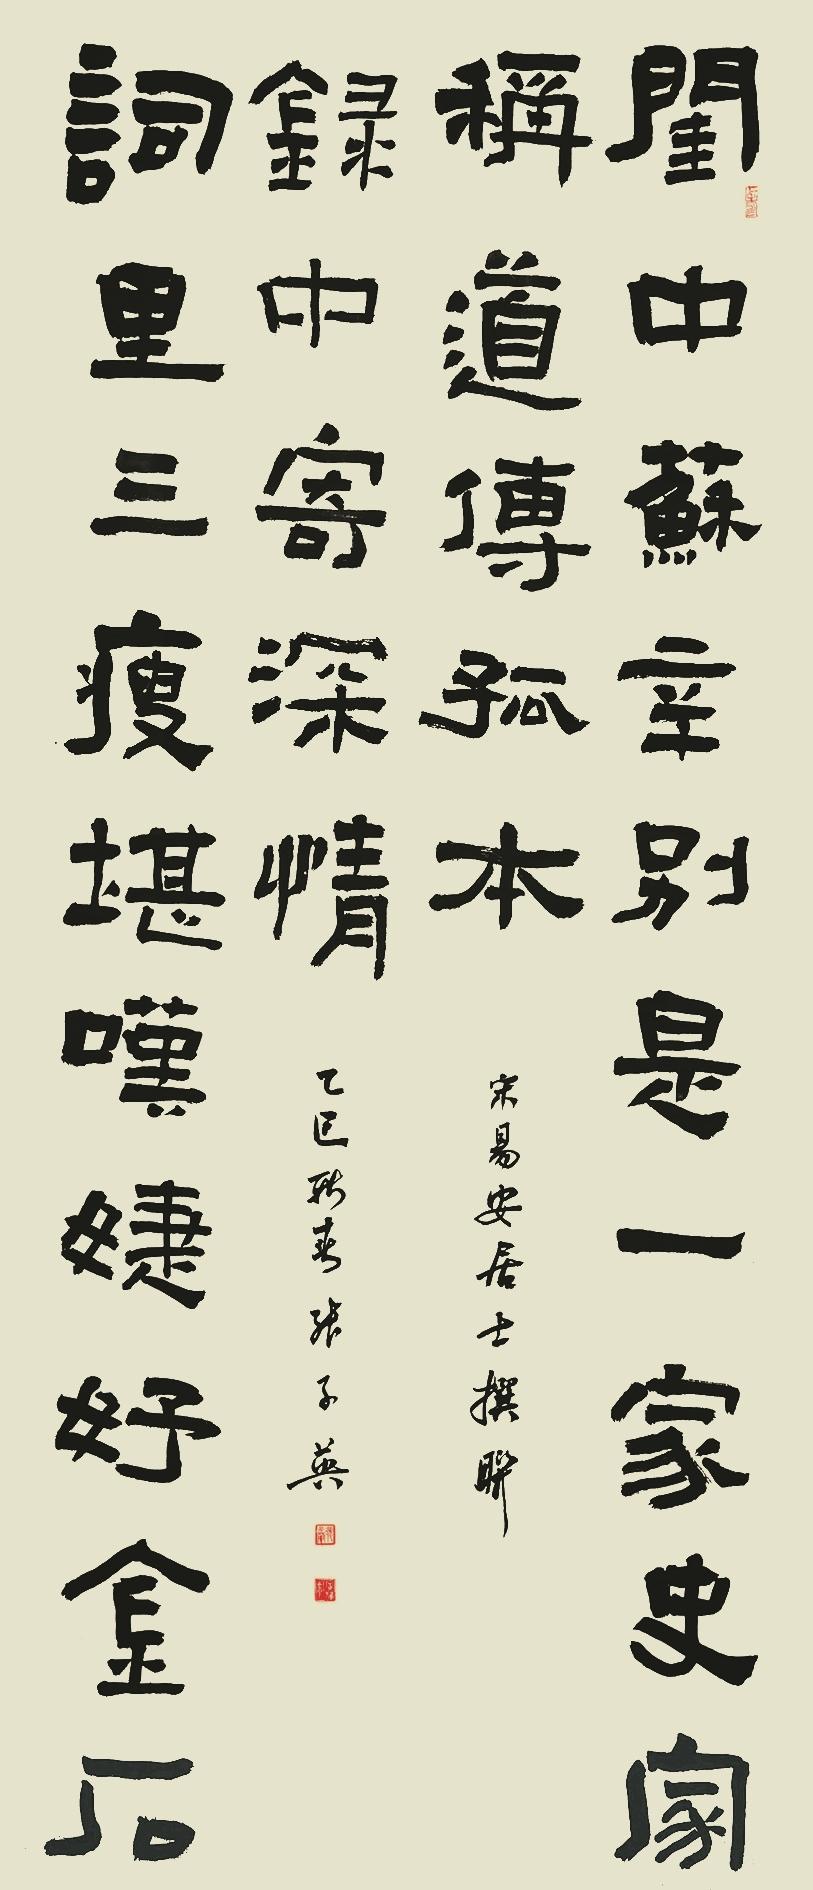 閨中蘇辛別是一家史家
稱道傳孤本
宋易安居士撰聯
詞里三瘦堪嘆婕妤金石
録中寄深情
乙巳新春張子英